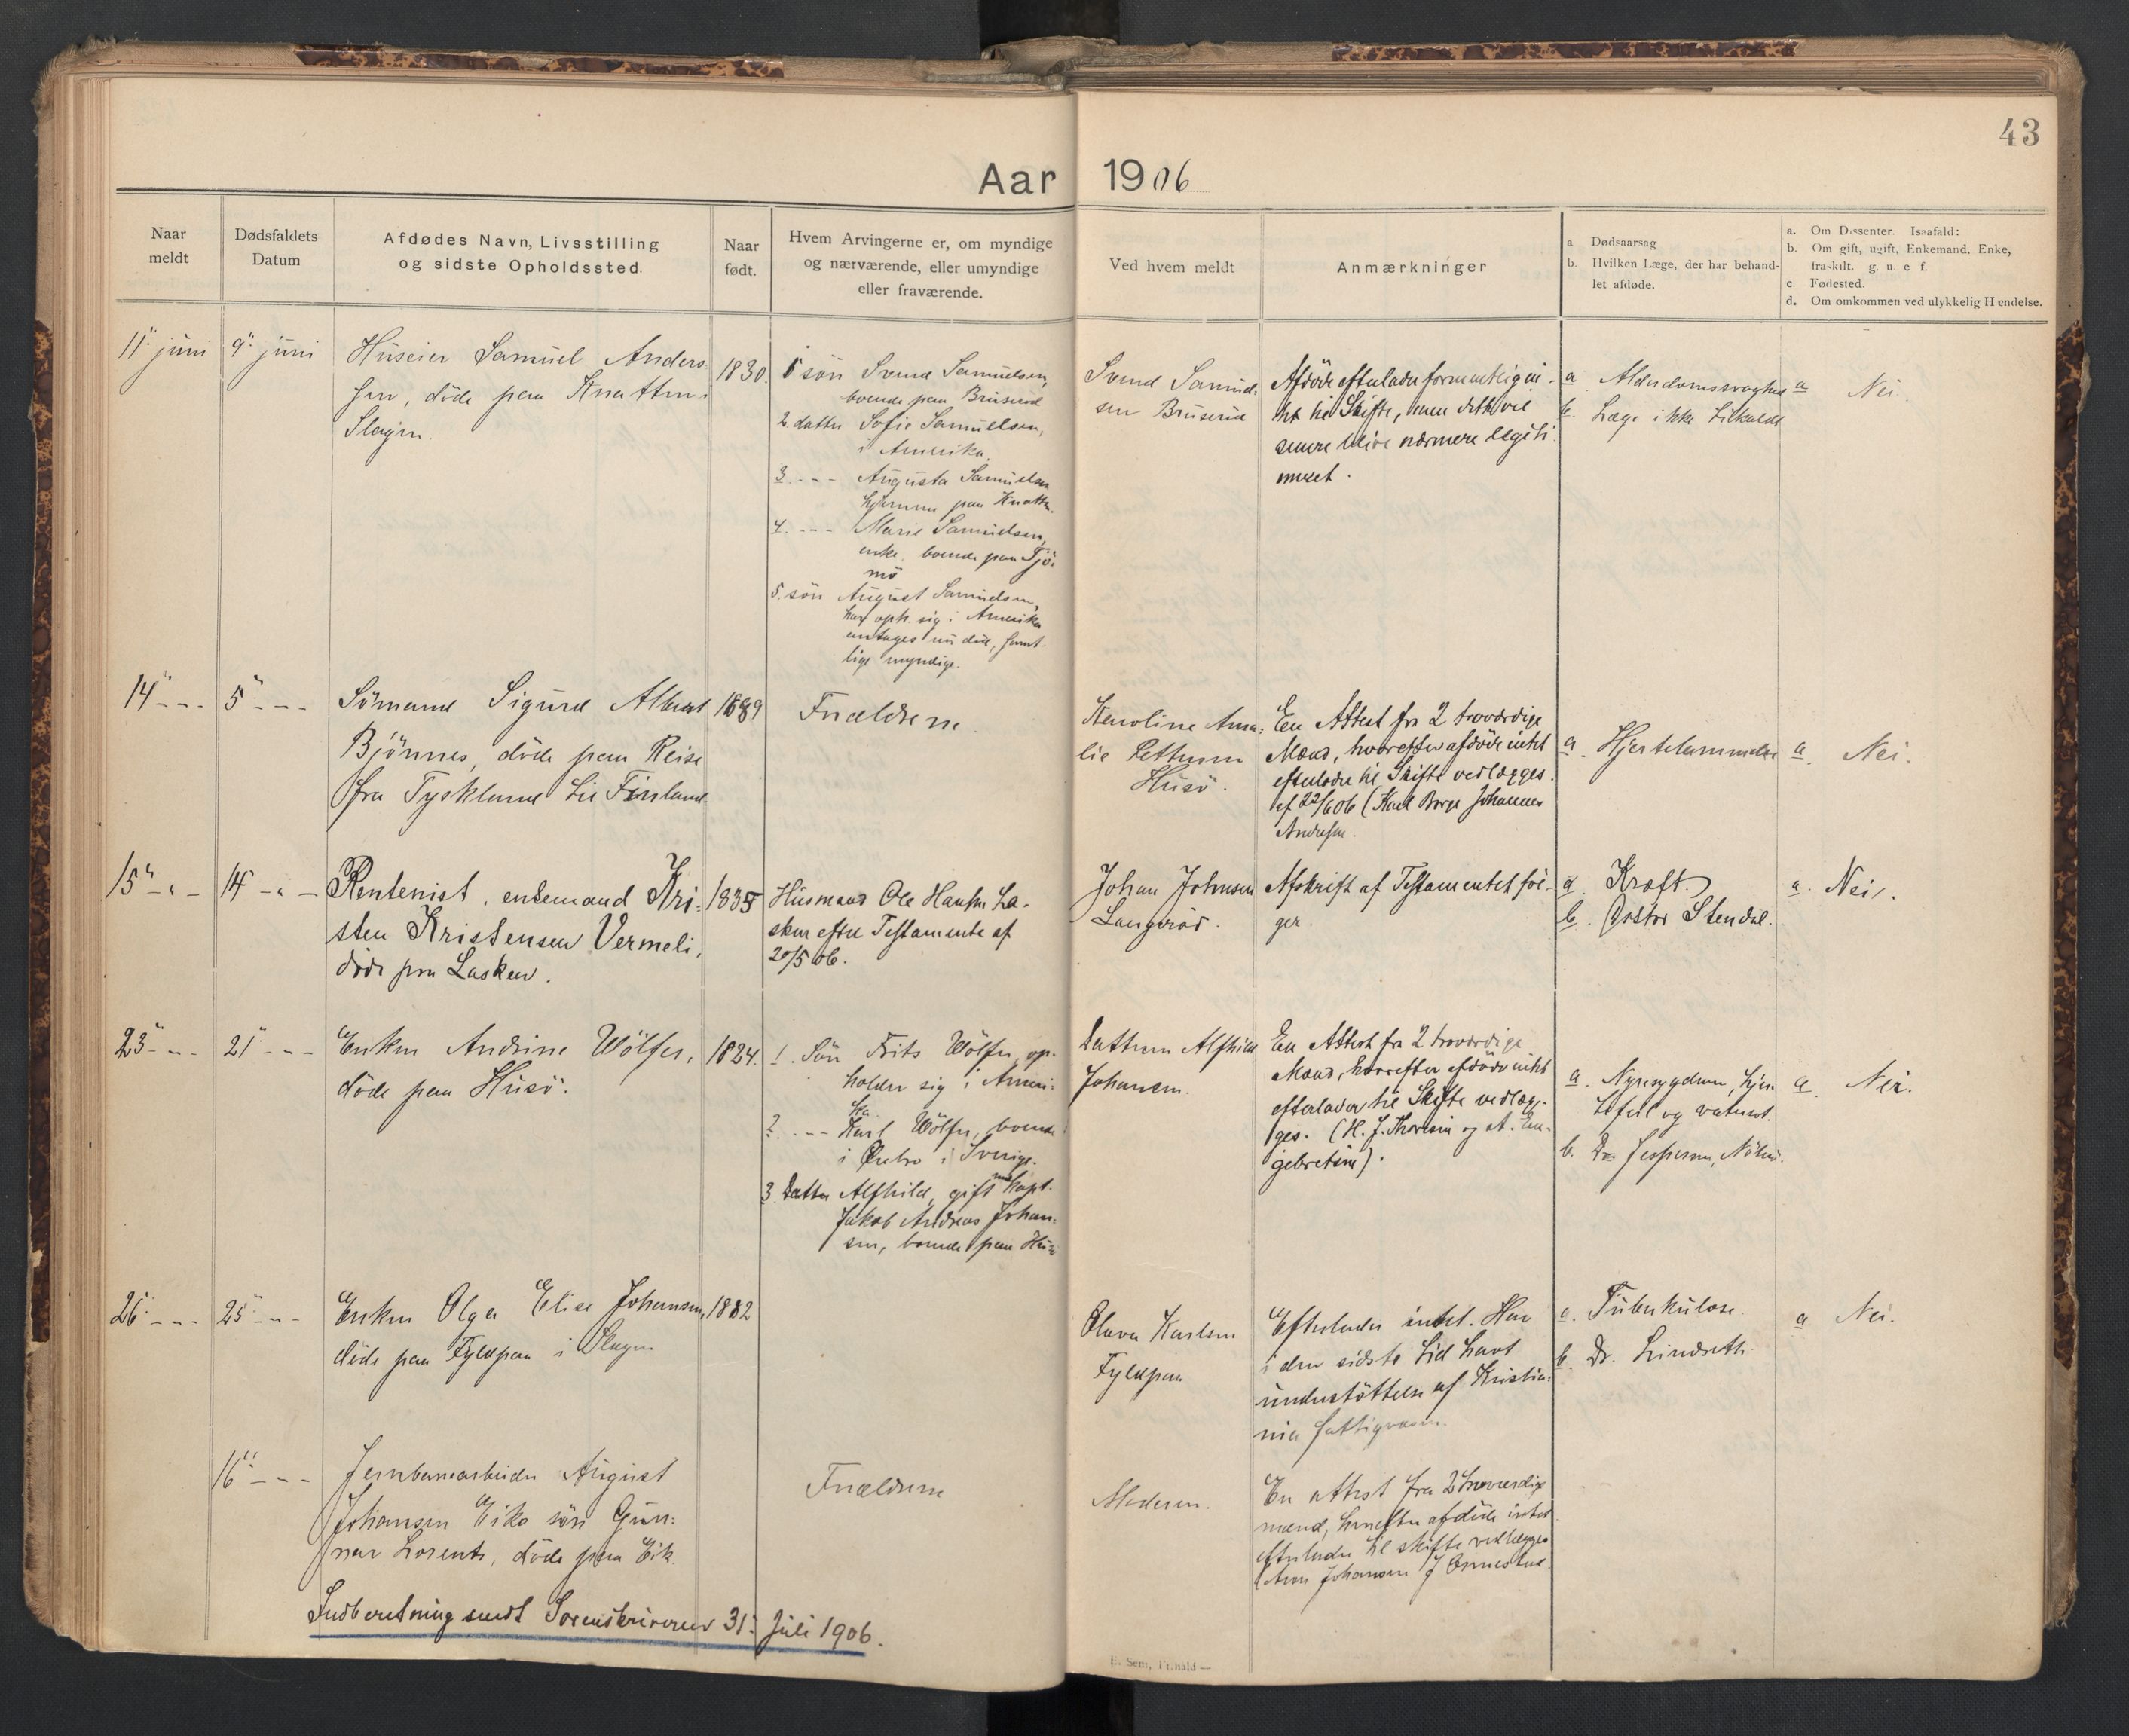 43
Aar 1906
Naar
meldt
Dødsfaldets
Datum
Afdødes Navn, Livsstilling
og sidste Opholdssted.
Naar
født.
Hvem Arvingerne er, om myndige
og nærværende, eller umyndige
eller fraværende.
Ved hvem meldt
Anmærkninger
a Dødsaarsag
b. Hvilken Læge, der har behand-
let afdøde.
a. Om Dissenter. Isaafald:
b. Om gift, ugift, Enkemand. Enke,
fraskilt. g. u. e f.
c. Fødested.
d. Om omkommen ved ulykkelig Hendelse.
11" juni
9" juni
Huseier Samuel Anders
sen, døde paa Knatten i
Slagen.
1830.
1 søn Svend Samuelsen,
boende paa Bruserud
2. datter Sofie Samuelsen,
i Amerika.
3. -- Augusta Samuelsen
hjemme paa Knatten.
4. --- Marie Samuelsen,
enke. boende paa Tjö-
mö
5. søn August Samuelsen,
har oph. sig i Amerika
antages nu död, samt
lige myndige.
Svend Samuel-
sen Bruserud
Afdöde efterlader formentlig in-
tet til Skifte, men dette vil
senere blive nærmere legiti
meret.
a Alderdomssvaghed
b. Læge ikke tilkaldt
a Nei.
14" ---
5" ---
Sömand Sigurd Albert
Bjönnes, döde paa Reise
fra Tyskland til Finland.
1889
Forældrene
Karoline Ama-
lie Pettersen
Husö.
En Attest fra 2 troværdige
Mænd, hvorefter afdöde intet
efterlader til Skifte vedlægges
af 22/6 06 (Karl Borge Johannes
Andresen.
a. Hjertelammelse
a. Nei.
15" - " -
14" - " -
Rentenist, enkemand Kri-
sten Kristensen Vermeli,
døde paa Lasken.
1835
Husmand Ole Hansen La-
sken efter Testamente af
20/5 06.
Johan Johnsen
Langeröd.
Afskrift af Testamentet föl-
ger
a. Kræft.
b. Doktor Stendal.
a. Nei.
23" ---
21" ---
Enken Andrine Wölfer,
döde paa Husö.
1824.
1. Sön Frits Wölfer, op-
holder sig i Ameri-
ka
2. --- Karl Wölfer, boende
i Örebro i Sverige.
3 Datter Alfhild, gift med Kapt.
Jakob Andreas Johan-
sen, boende paa Husö
Datteren Alfhild
Johansen.
En Attest fra 2 troværdige
Mænd, hvorefter afdöde intet
efterlader til Skifte vedlæg-
ges. (H. J. Thoresen og A. En-
gebretsen).
a. Nyresygdom, hjer-
tefeil og vatersot.
b. Dr Jespersen, Nöterö.
a. Nei.
26" ---
25" ---
Enken Olga Elise Johansen,
döde paa Fyldpaa i Slagen
1882
Olava Karlsen
Fyldpaa
Efterlader intet. Har
i den sidste tid havt
understöttelse af Kristia-
nia fattigvæsen.
a. Tuberkulose.
b. Dr. Lindseth.
a Nei.
16" ---
Jernbanearbeider August
Johansen Eiks sön Gun-
nar Lorents, döde paa Eik.
Forældrene
Moderen.
En attest fra 2 troværdige
mænd, hvorefter afdöde intet
efterlader til skifte vedlægges
(Arn Johansen J
Indberetning sendt Sorenskriveren 31. Juli 1906.
E. Sem, Fr.hald —